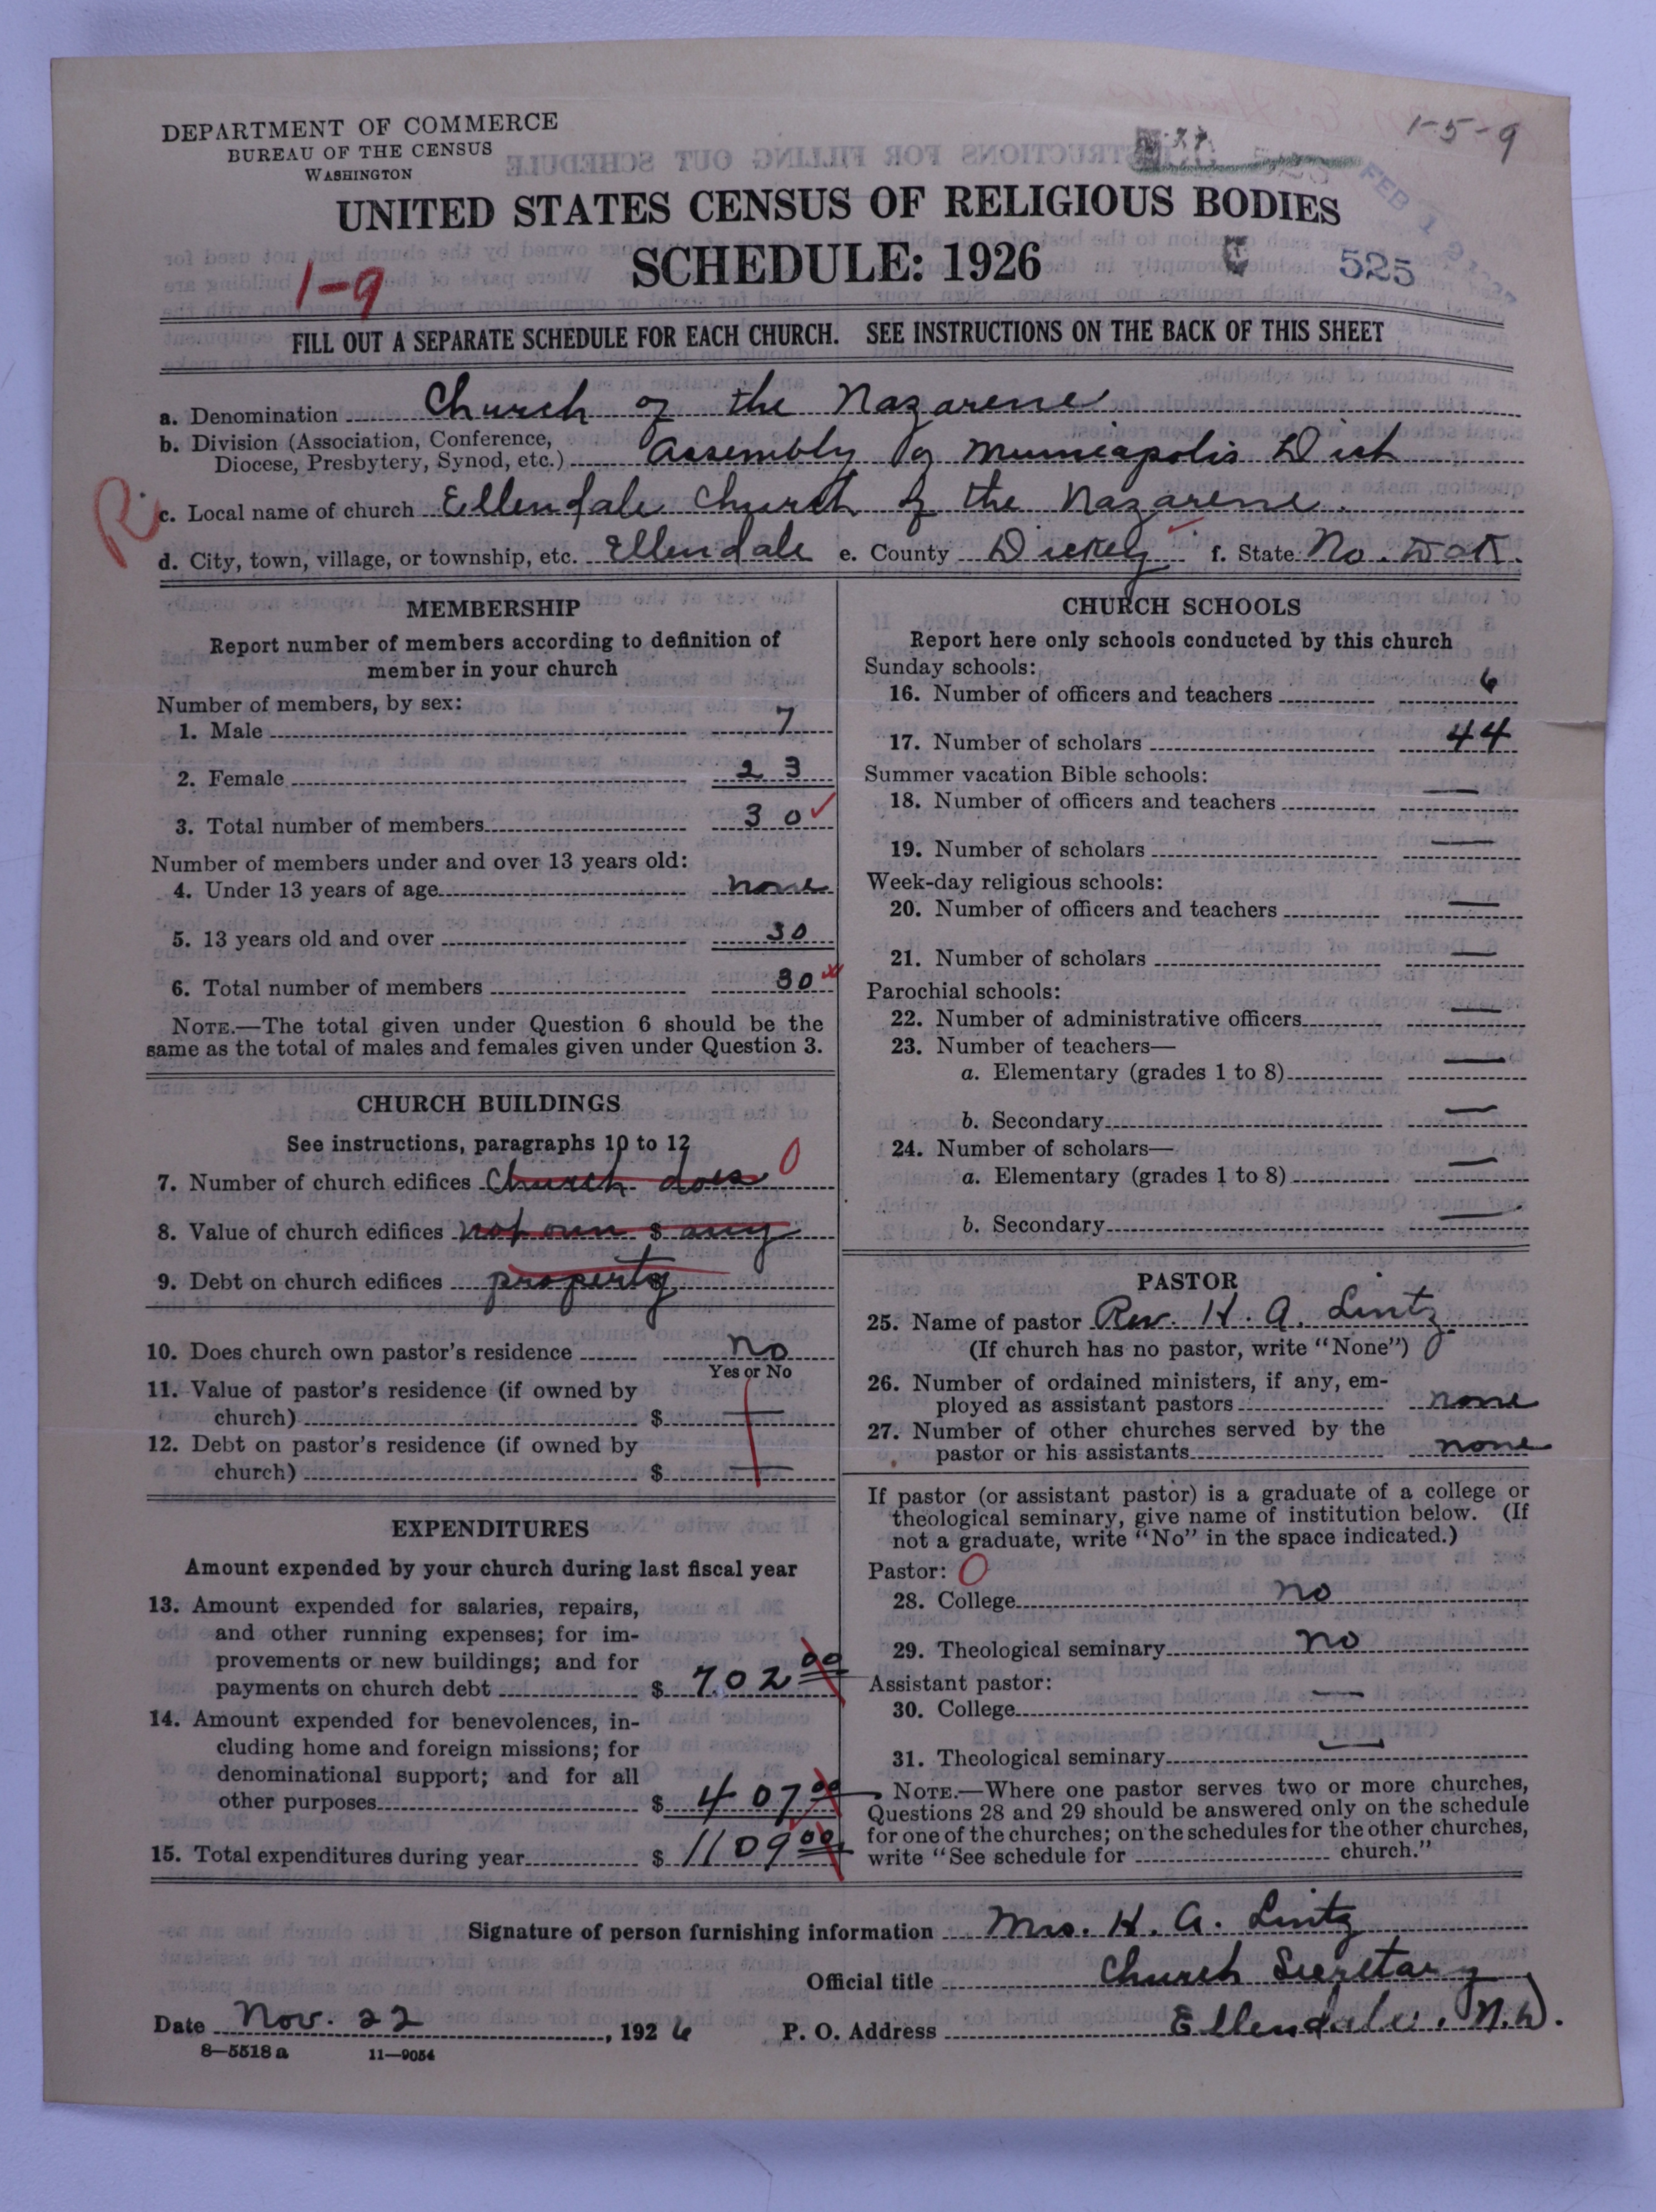 DEPARTMENT OF COMMERCE
BUREAU OF THE CENSUS
WASHINGTON
1-5-9
UNITED STATES CENSUS OF RELIGIOUS BODIES
SCHEDULE: 1926
525
1-9
FILL OUT A SEPARATE SCHEDULE FOR EACH CHURCH. SEE INSTRUCTIONS ON THE BACK OF THIS SHEET
a. Denomination Church of the Nazarene
b. Division (Association, Conference,
Diocese, Presbytery, Synod, etc.) Assembly of Minneapolis Dist
R. c. Local name of church Ellendale Church of the Nazarene.
d. City, town, village, or township, etc. Ellendale e. County Dickey f. State No. Dak.
MEMBERSHIP
Report number of members according to definition of
member in your church
Number of members, by sex:
1. Male 7
2. Female 23
3. Total number of members 30 ✓
Number of members under and over 13 years old:
4. Under 13 years of age none
5. 13 years old and over 30
6. Total number of members 30
NOTE.—The total given under Question 6 should be the
same as the total of males and females given under Question 3.
CHURCH BUILDINGS
See instructions, paragraphs 10 to 12
7. Number of church edifices Church does 0
8. Value of church edifices not own $ any
9. Debt on church edifices property
10. Does church own pastor's residence no
Yes or No
11. Value of pastor's residence (if owned by
church) $ —
12. Debt on pastor's residence (if owned by
church) $ —
EXPENDITURES
Amount expended by your church during last fiscal year
13. Amount expended for salaries, repairs,
and other running expenses; for im-
provements or new buildings; and for
payments on church debt $ 702 00
14. Amount expended for benevolences, in-
cluding home and foreign missions; for
denominational support; and for all
other purposes $ 407 00
15. Total expenditures during year $ 1109 00
CHURCH SCHOOLS
Report here only schools conducted by this church
Sunday schools:
16. Number of officers and teachers 6
17. Number of scholars 44
Summer vacation Bible schools:
18. Number of officers and teachers —
19. Number of scholars —
Week-day religious schools:
20. Number of officers and teachers —
21. Number of scholars —
Parochial schools:
22. Number of administrative officers —
23. Number of teachers—
a. Elementary (grades 1 to 8) —
b. Secondary —
24. Number of scholars—
a. Elementary (grades 1 to 8) —
b. Secondary —
PASTOR
25. Name of pastor Rev. H. A. Lintz
(If church has no pastor, write "None")
26. Number of ordained ministers, if any, em-
ployed as assistant pastors none
27. Number of other churches served by the
pastor or his assistants none
If pastor (or assistant pastor) is a graduate of a college or
theological seminary, give name of institution below. (If
not a graduate, write "No" in the space indicated.)
Pastor: 0
28. College no
29. Theological seminary no
Assistant pastor:
30. College —
31. Theological seminary —
NOTE.—Where one pastor serves two or more churches,
Questions 28 and 29 should be answered only on the schedule
for one of the churches; on the schedules for the other churches,
write "See schedule for church."
Signature of person furnishing information Mrs. H. A. Lintz
Official title Church Secretary
Date Nov. 22, 1926 P. O. Address Ellendale, N.D.
8—5518 a 11—9054